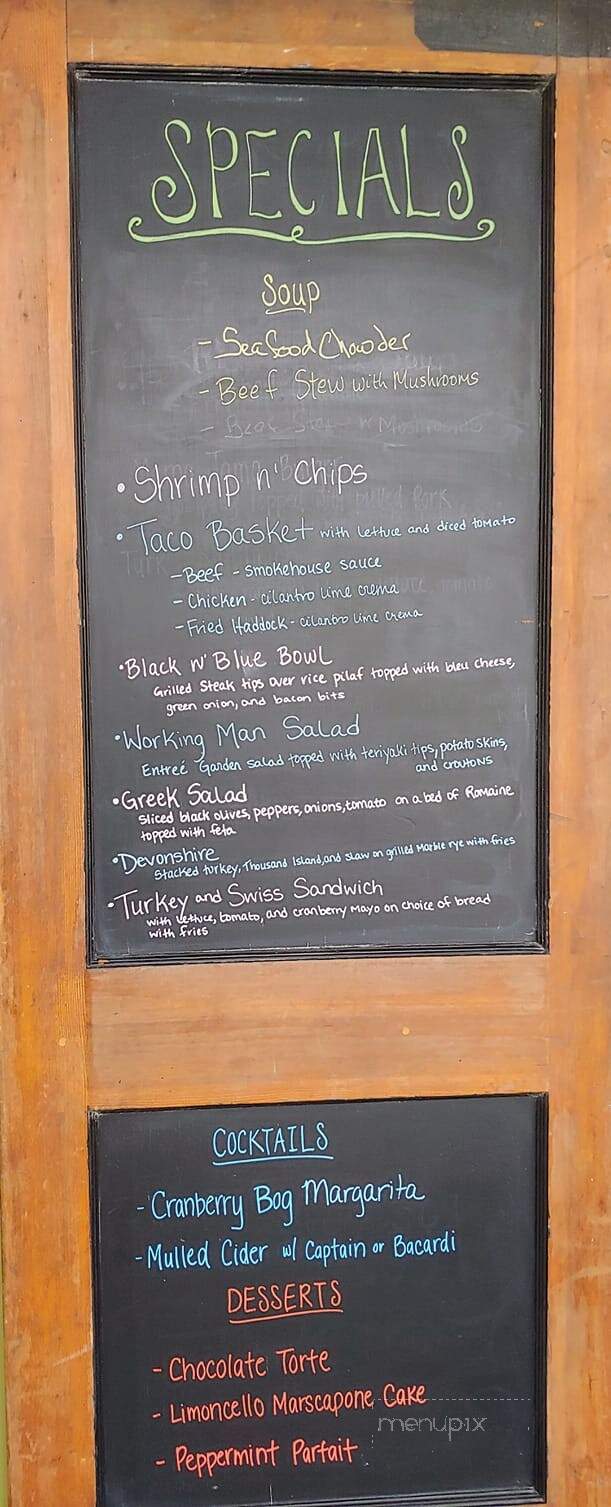 SPECIALS
Soup
- Seafood Chowder
- Beef Stew with Mushrooms
- Beef Stew w Mushrooms
• Shrimp n' Chips
• Taco Basket with lettuce and diced tomato
- Beef - smokehouse sauce
- Chicken - cilantro lime crema
- Fried Haddock - cilantro lime crema
• Black n' Blue Bowl
Grilled Steak tips over rice pilaf topped with bleu cheese,
green onion, and bacon bits
• Working Man Salad
Entreé Garden salad topped with teriyaki tips, potato skins,
and croutons
• Greek Salad
Sliced black olives, peppers, onions, tomato on a bed of Romaine
topped with feta
• Devonshire
Stacked turkey, Thousand Island, and slaw on grilled Marble rye with fries
• Turkey and Swiss Sandwich
with lettuce, tomato, and cranberry Mayo on choice of bread
with fries
COCKTAILS
- Cranberry Bog Margarita
- Mulled Cider w/ Captain or Bacardi
DESSERTS
- Chocolate Torte
- Limoncello Marscapone Cake
- Peppermint Parfait
menupix